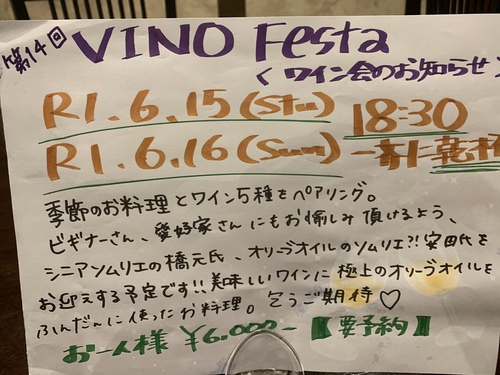 第14回 VINO Festa
<ワイン会のお知らせ>
R1.6.15(Stu) 18:30
R1.6.16(Sun) 一斉に乾杯
季節のお料理とワイン5種をペアリング。
ビギナーさん、愛好家さんにもお愉しみ頂けるよう、
シニアソムリエの橋元氏、オリーブオイルのソムリエ?!安田氏を
お迎えする予定です!!美味しいワインに極上のオリーブオイルを
ふんだんに使ったお料理。乞うご期待♡
お一人様 ¥6,000- 【要予約】